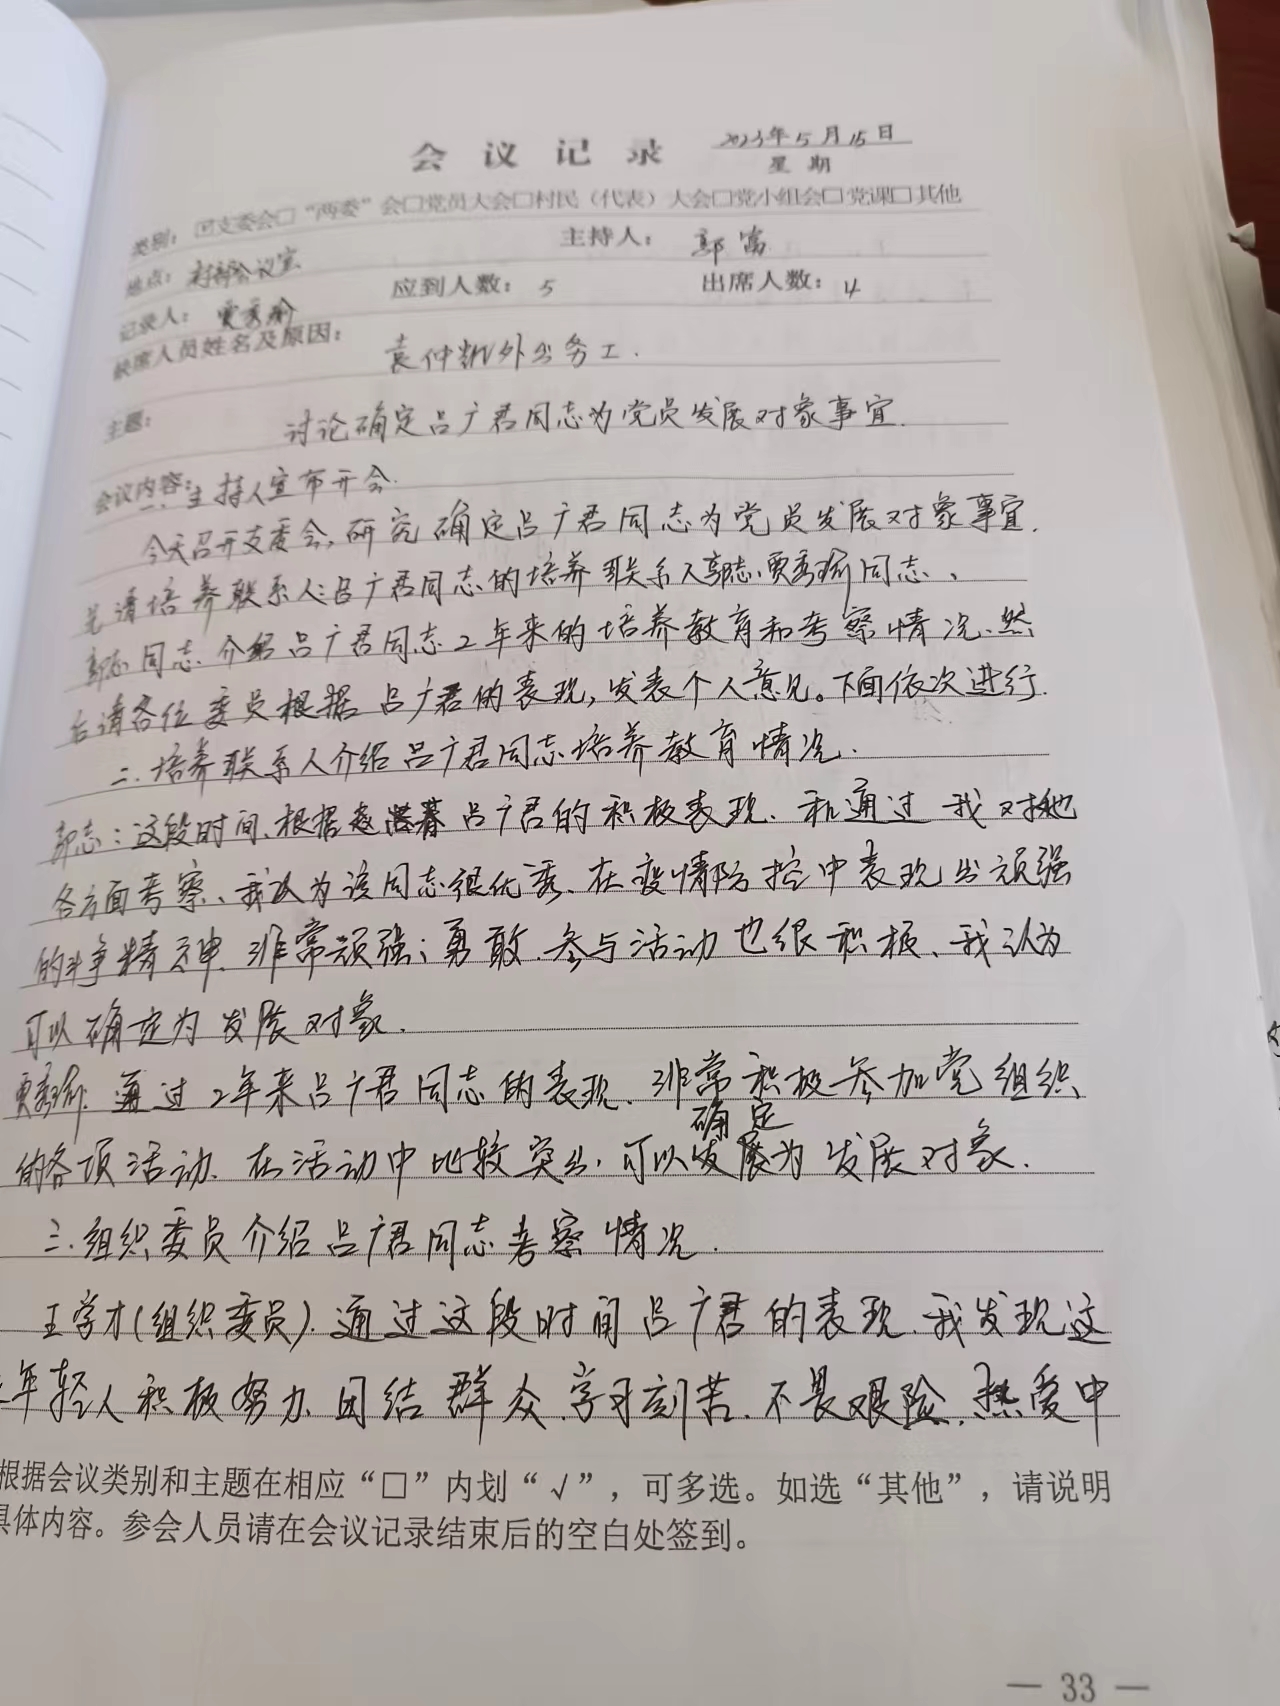 会议记录 2023年5月15日
星期
类别：☑支委会□“两委”会□党员大会□村民（代表）大会□党小组会□党课□其他
地点：村部会议室 主持人：郭富
记录人：贾秀瑜 应到人数：5 出席人数：4
缺席人员姓名及原因：袁仲 外出务工.
主题： 讨论确定吕广君同志为党员发展对象事宜.
会议内容：一、主持人宣布开会.
今天召开支委会,研究确定吕广君同志为党员发展对象事宜.
先请培养联系人:吕广君同志的培养联系人郭志、贾秀瑜同志、
郭志同志、介绍吕广君同志2年来的培养教育和考察情况、然
后请各位委员根据吕广君的表现,发表个人意见。下面依次进行.
二.培养联系人介绍吕广君同志培养教育情况.
郭志：这段时间、根据 吕广君的积极表现、和通过我对她
各方面考察、我认为该同志很优秀、在疫情防控中表现出顽强
的斗争精神、非常顽强；勇敢、参与活动也很积极、我认为
可以确定为发展对象.
贾秀瑜:通过2年来吕广君同志的表现、非常积极参加党组织
确定
的各项活动、在活动中比较突出,可以发展为发展对象.
三.组织委员介绍吕广君同志考察情况.
王学才(组织委员).通过这段时间吕广君的表现、我发现这
年轻人积极努力、团结群众、学习刻苦、不畏艰险、热爱中
根据会议类别和主题在相应“□”内划“√”，可多选。如选“其他”，请说明
具体内容。参会人员请在会议记录结束后的空白处签到。
— 33 —